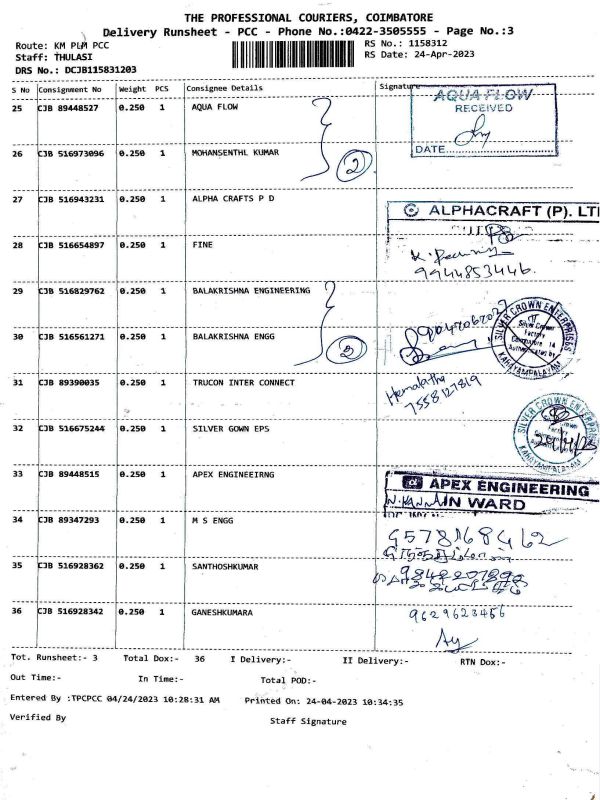 THE PROFESSIONAL COURIERS, COIMBATORE
Delivery Runsheet - PCC - Phone No.:0422-3505555 - Page No.:3
Route: KM PLM PCC
RS No.: 1158312
Staff: THULASI
RS Date: 24-Apr-2023
DRS No.: DCJB115831203
S No Consignment No Weight PCS Consignee Details Signature
25 CJB 89448527 0.250 1 AQUA FLOW
AQUA FLOW
RECEIVED
DATE
2
26 CJB 516973096 0.250 1 MOHANSENTHL KUMAR
27 CJB 516943231 0.250 1 ALPHA CRAFTS P D
ALPHACRAFT (P). LT
28 CJB 516654897 0.250 1 FINE
9944853446.
29 CJB 516829762 0.250 1 BALAKRISHNA ENGINEERING
SILVER CROWN ENTERPRISES
Silver Crown
Factory
Coimbatore 14
KAHAYAMPALAYAM
30 CJB 516561271 0.250 1 BALAKRISHNA ENGG
2
31 CJB 89390035 0.250 1 TRUCON INTER CONNECT
Hemalatha
7558127819
32 CJB 516675244 0.250 1 SILVER GOWN EPS
SILVER CROWN ENTERPRIS
33 CJB 89448515 0.250 1 APEX ENGINEEIRNG
APEX ENGINEERING
N. KANNAN
IN WARD
34 CJB 89347293 0.250 1 M S ENGG
9578168462
35 CJB 516928362 0.250 1 SANTHOSHKUMAR
36 CJB 516928342 0.250 1 GANESHKUMARA
9629623456
Tot. Runsheet:- 3 Total Dox:- 36 I Delivery:- II Delivery:- RTN Dox:-
Out Time:- In Time:- Total POD:-
Entered By :TPCPCC 04/24/2023 10:28:31 AM Printed On: 24-04-2023 10:34:35
Verified By Staff Signature